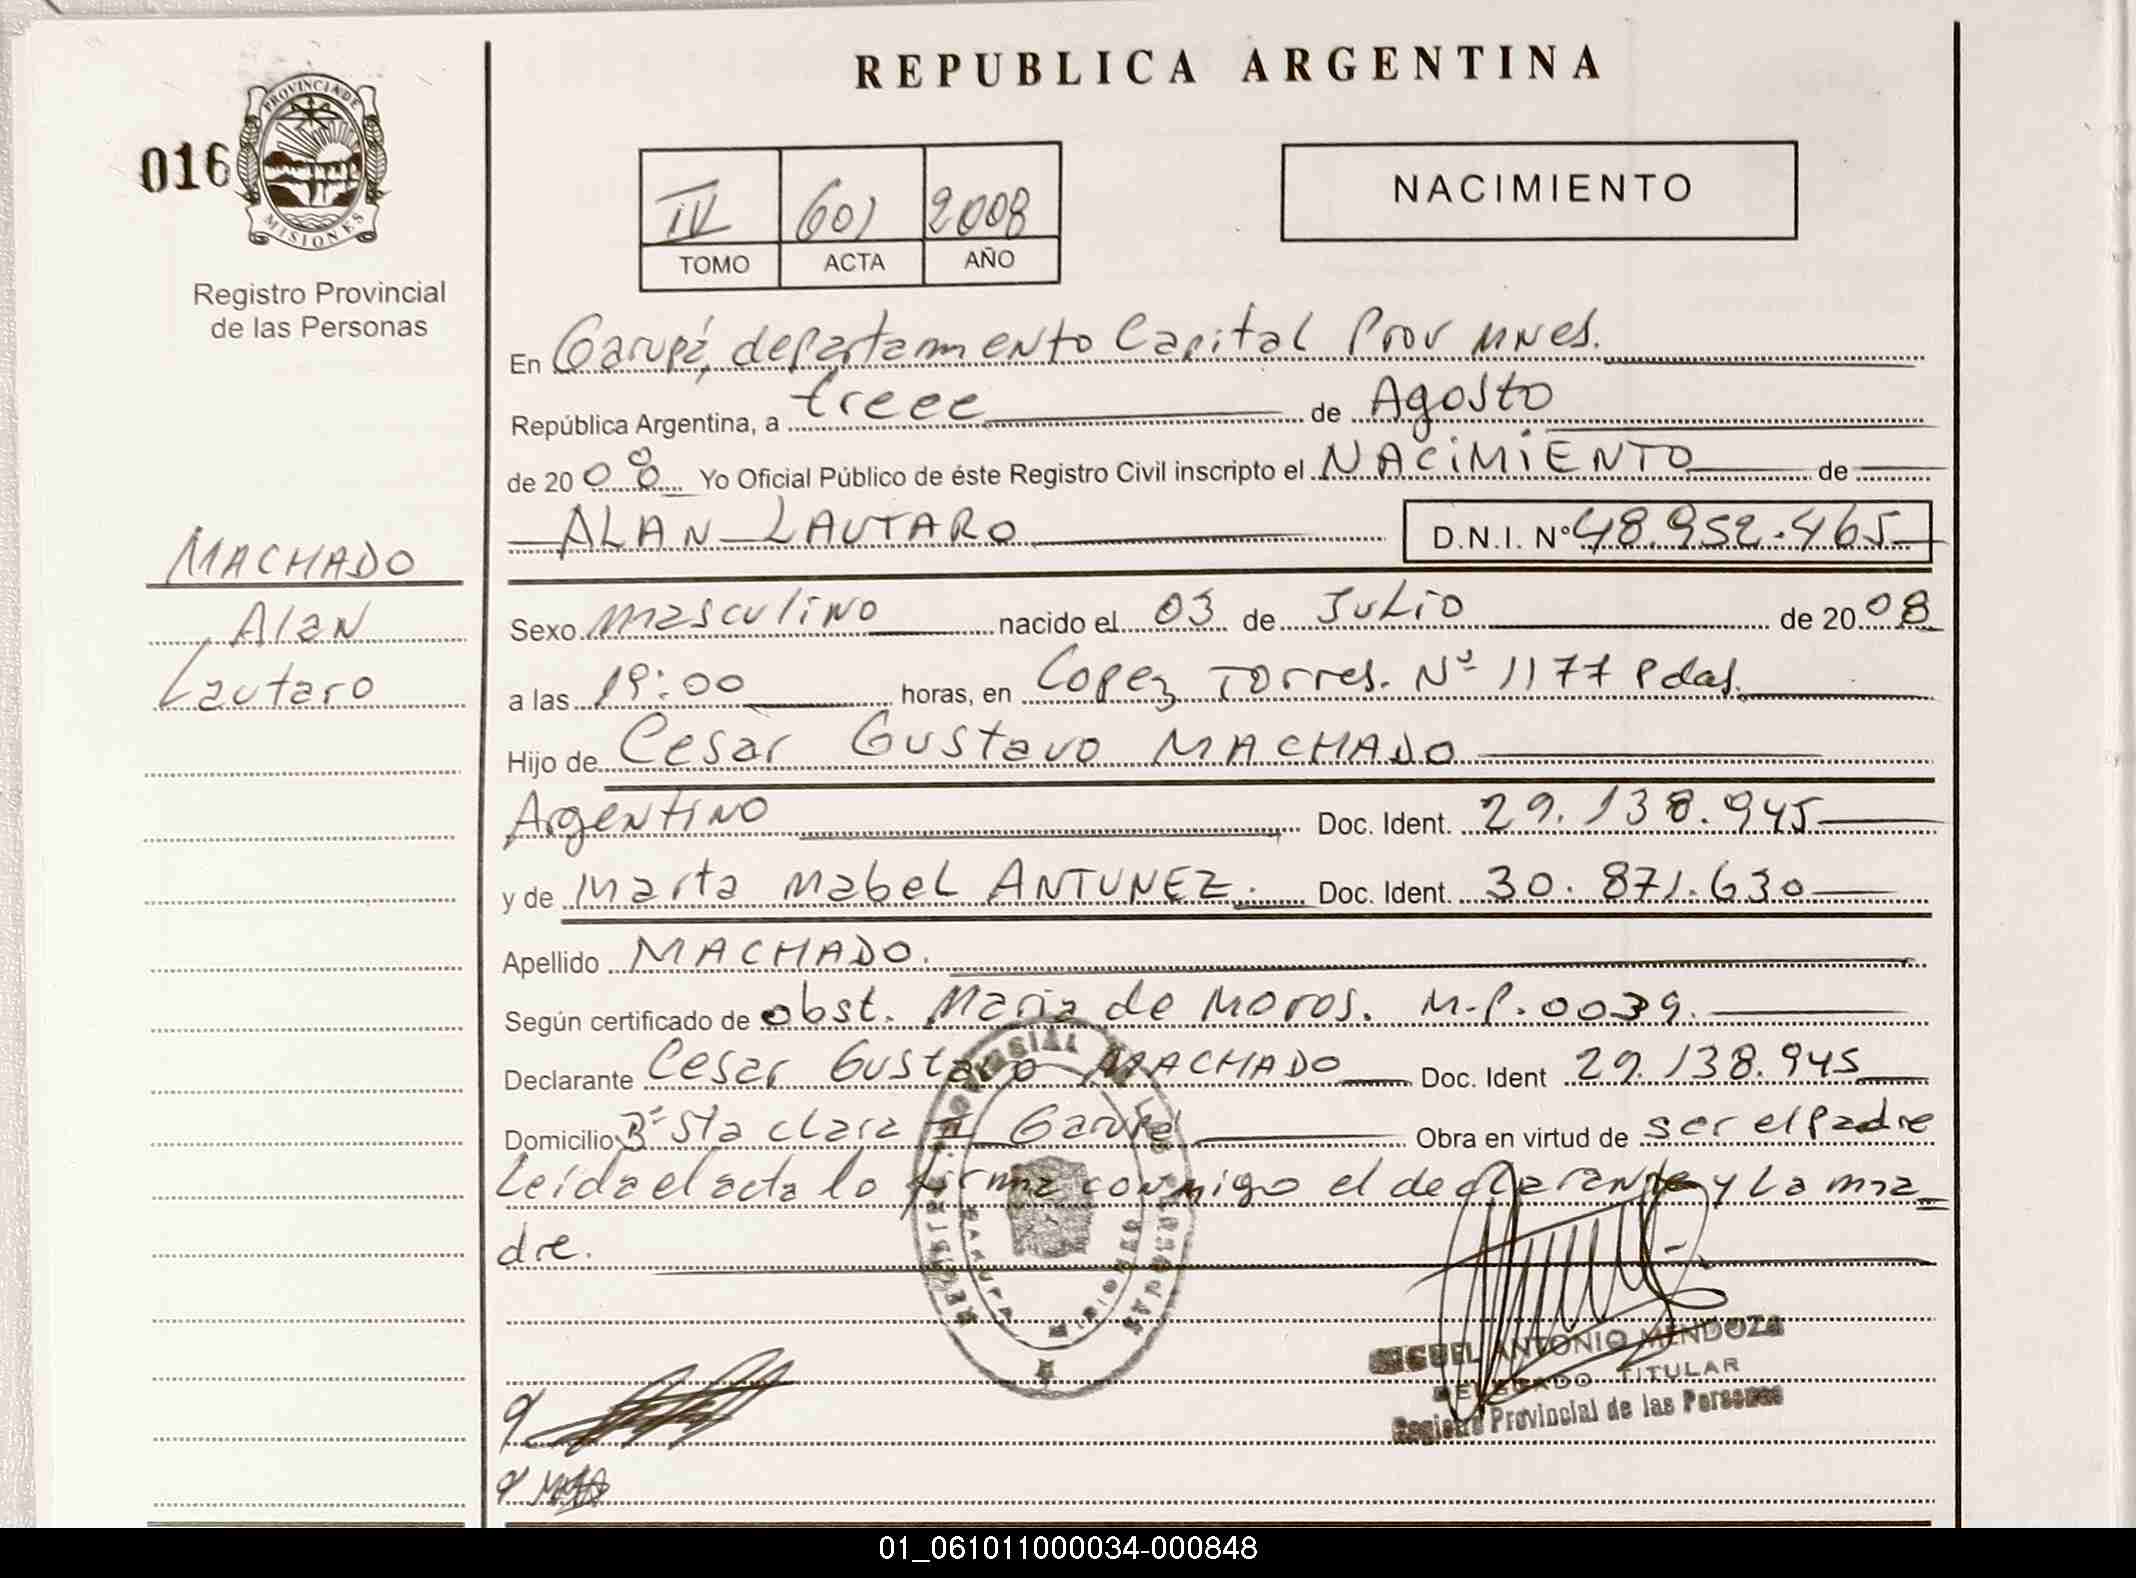 REPUBLICA ARGENTINA
PROVINCIA DE
MISIONES
016
Registro Provincial
de las Personas
IV 601 2008
TOMO ACTA AÑO
NACIMIENTO
En Garupá, departamento Capital Prov Mnes.
República Argentina, a trece de Agosto
de 2008 Yo Oficial Público de éste Registro Civil inscripto el NACIMIENTO de
ALAN LAUTARO D.N.I. Nº 48.952.465
MACHADO
Alan
Lautaro
Sexo masculino nacido el 03 de Julio de 2008
a las 19:00 horas, en Lopez Torres. Nº 1177 Pdas.
Hijo de Cesar Gustavo MACHADO
Argentino Doc. Ident. 29.138.945
y de Marta Mabel ANTUNEZ. Doc. Ident. 30.871.630
Apellido MACHADO.
Según certificado de obst. Maria de Moros. M.P. 0039.
Declarante Cesar Gustavo MACHADO Doc. Ident 29.138.945
Domicilio Bº Sta clara II Garupá Obra en virtud de ser el Padre
Leída el acta lo firma conmigo el declarante y la ma=
dre.
REGISTRO PROVINCIAL DE LAS PERSONAS
GARUPA MISIONES
MIGUEL ANTONIO MENDOZA
DELEGADO TITULAR
Registro Provincial de las Personas
01_061011000034-000848